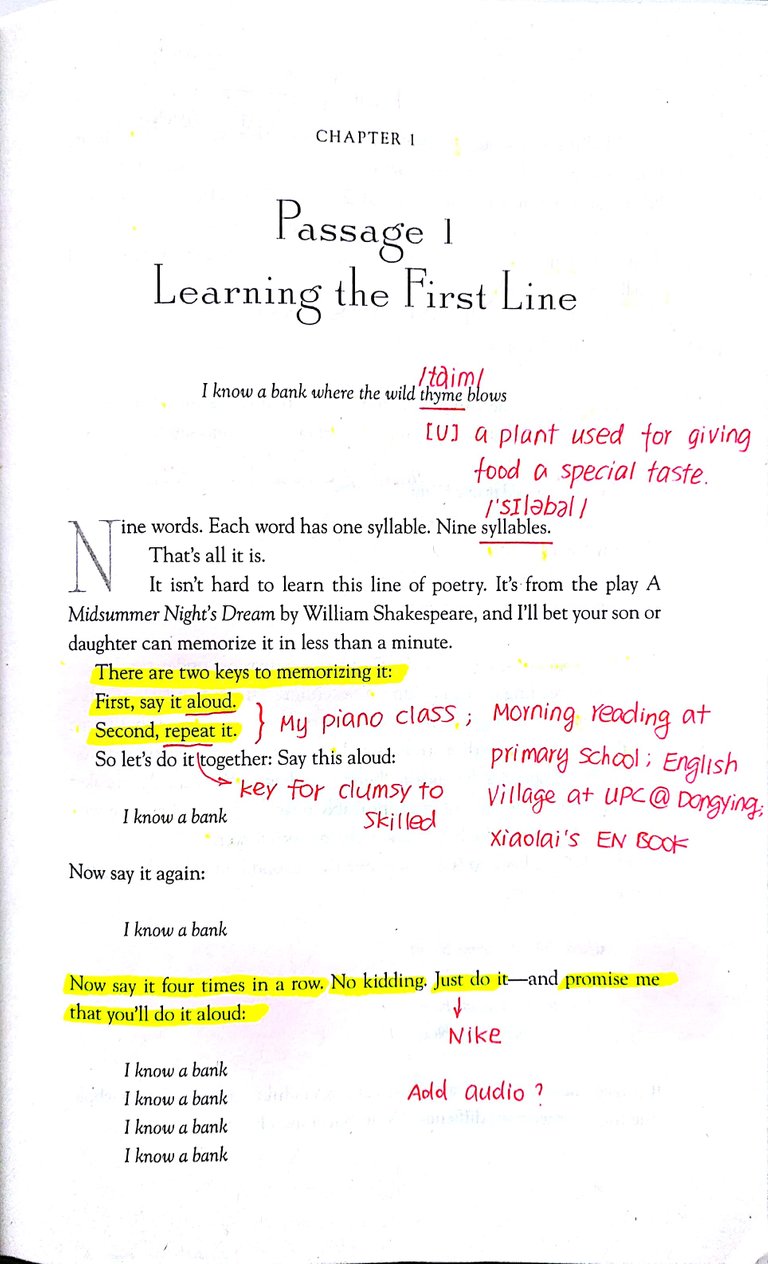 CHAPTER 1
Passage 1
Learning the First Line
/taim/
I know a bank where the wild thyme blows
[U] a plant used for giving
food a special taste.
/'sɪləbəl/
Nine words. Each word has one syllable. Nine syllables.
That's all it is.
It isn't hard to learn this line of poetry. It's from the play A
Midsummer Night's Dream by William Shakespeare, and I'll bet your son or
daughter can memorize it in less than a minute.
There are two keys to memorizing it:
First, say it aloud.
Second, repeat it.
} My piano class; Morning reading at
primary school; English
Village at UPC@Dongying;
Xiaolai's EN BOOK
So let's do it together: Say this aloud:
key for clumsy to
skilled
I know a bank
Now say it again:
I know a bank
Now say it four times in a row. No kidding. Just do it—and promise me
that you'll do it aloud:
Nike
I know a bank
Add audio?
I know a bank
I know a bank
I know a bank